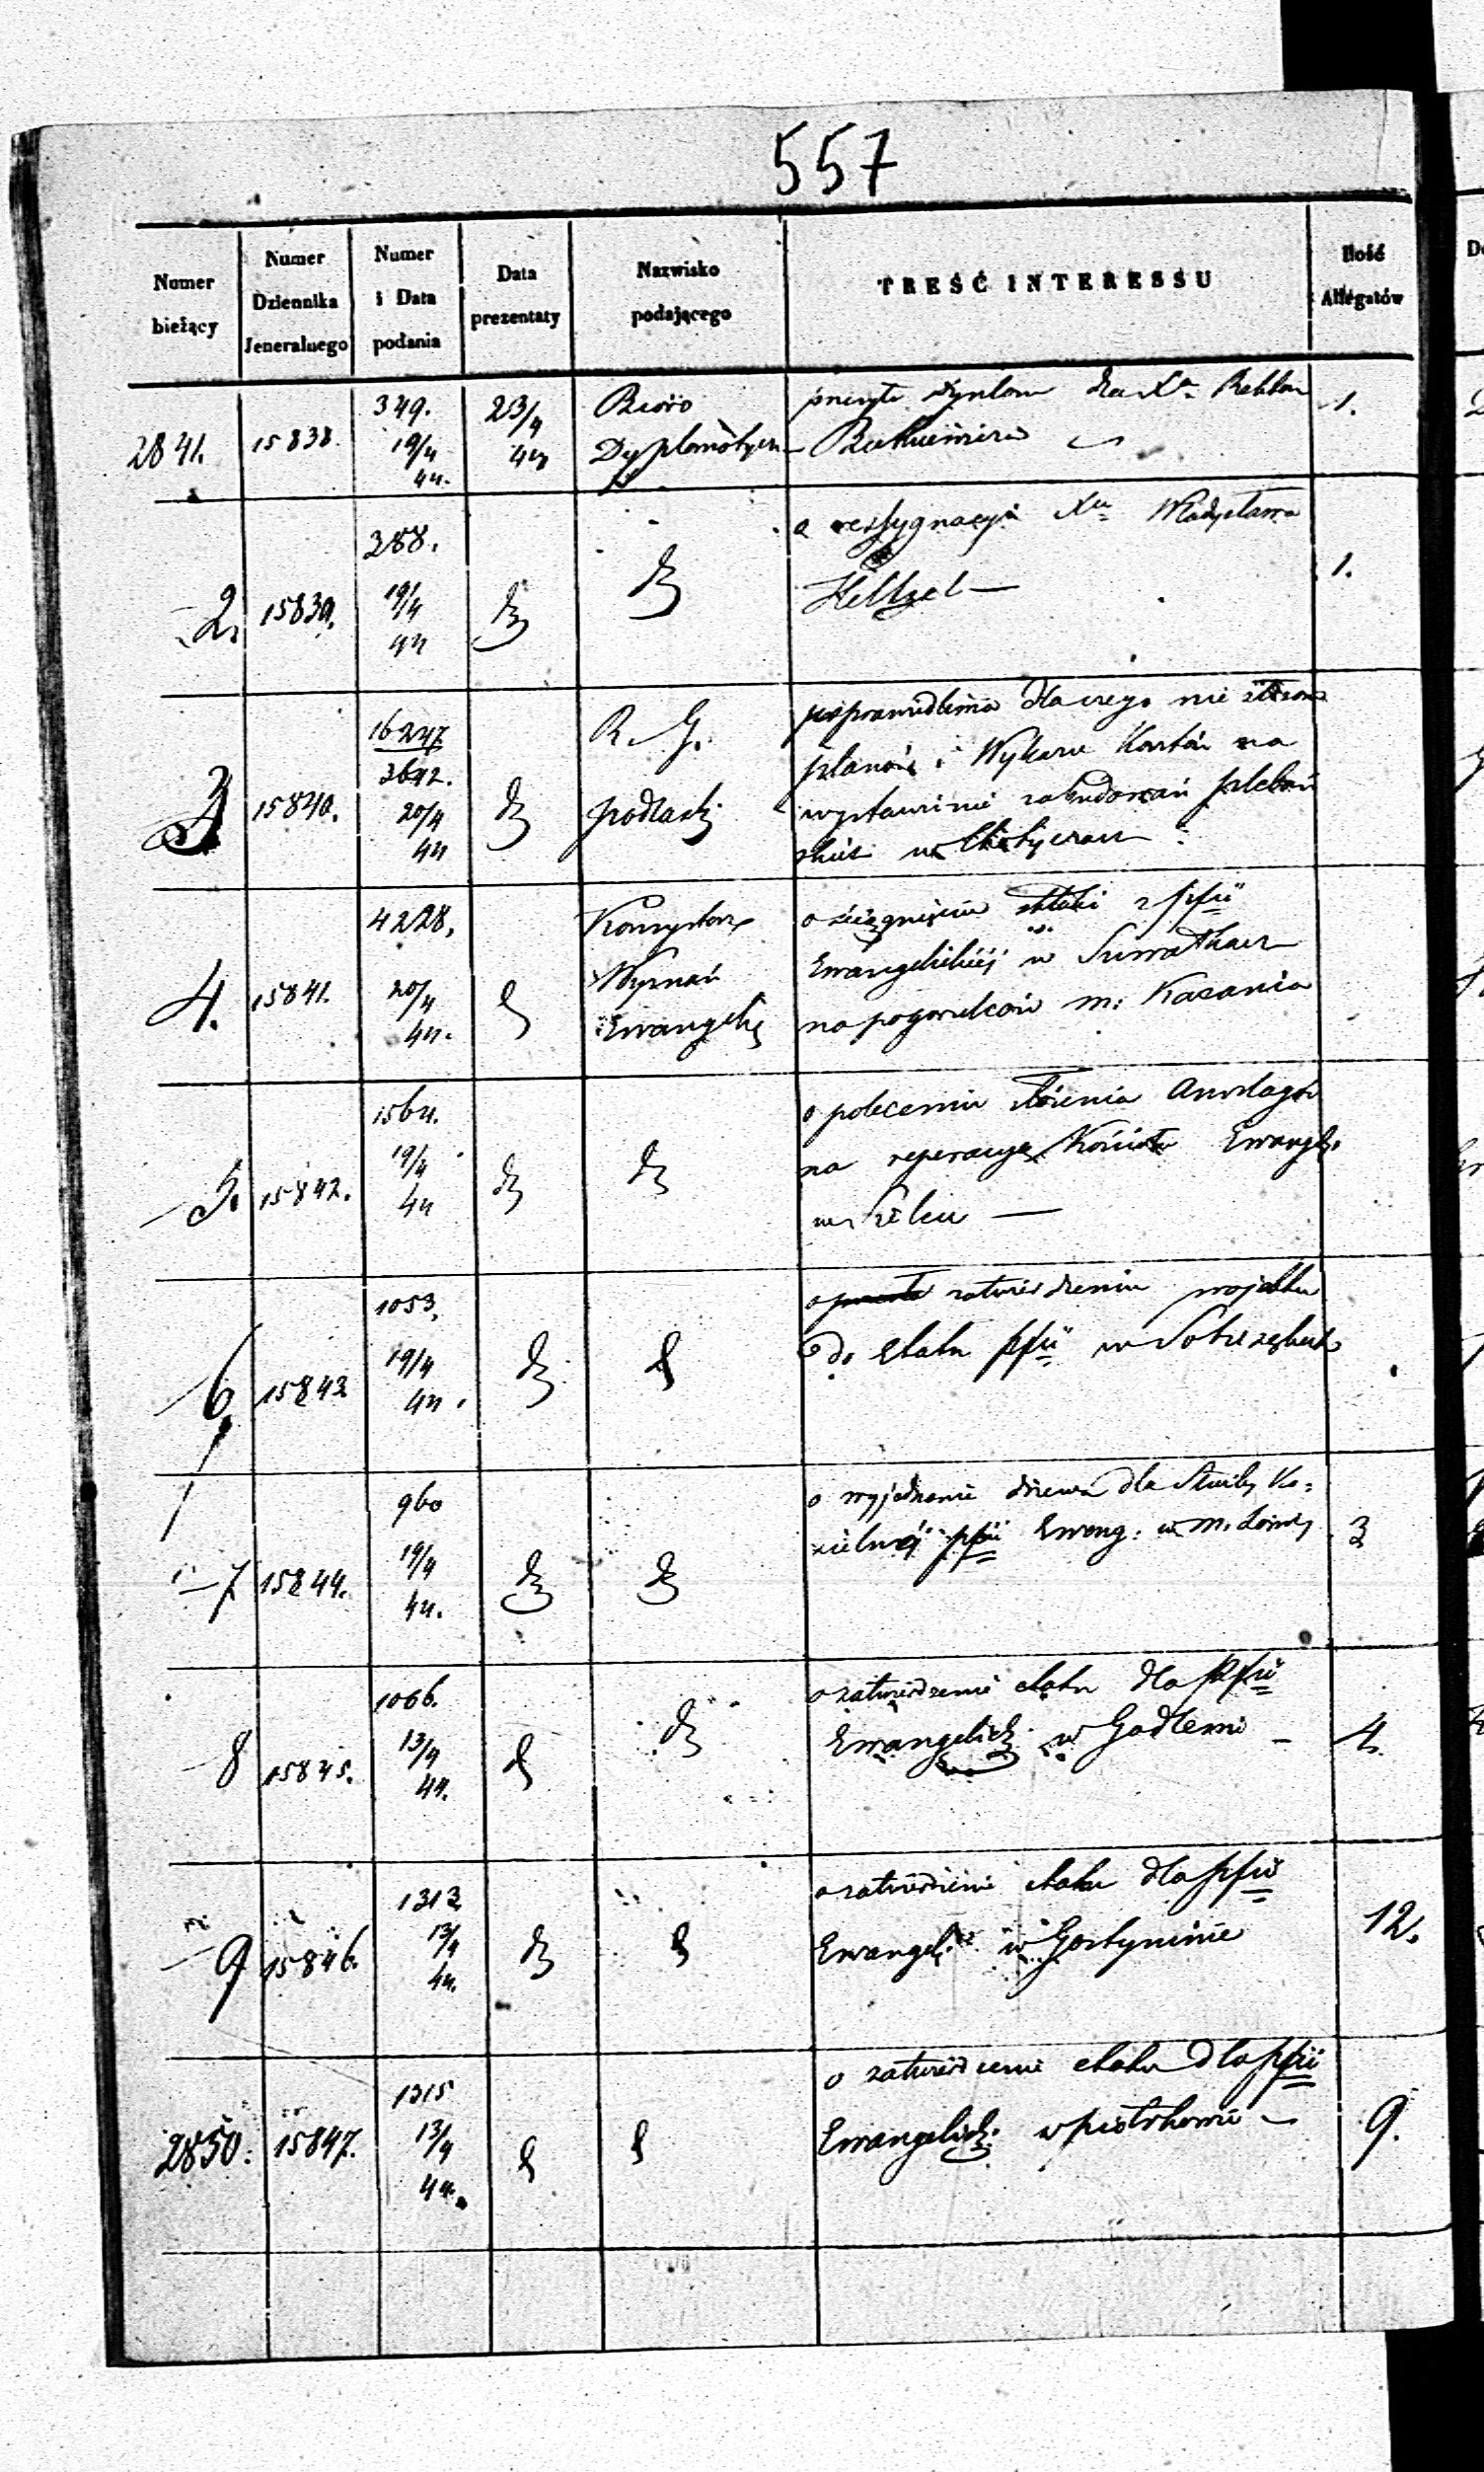 557
Numer bieżący
Numer Dziennika Jeneralnego
Numer i Data podania
Data prezentaty
Nazwisko podającego
TREŚĆ INTERESSU
Ilość Allegatów
2841. 15838. 349. 19/4 44. 23/4 44 Biuro Dyplomatycz
1.
2. 15839. 388. 19/4 44 d
o ressygnacyi Xa Władysława
Heltzel —
1.
3 15840. 16247. 3642. 20/4 44 R. G. podlaski
dlaczego nie
planów i Wykazu Kosztów na
wystawienie zabudowań pleban
skich w
4. 15841. 4228. 20/4 44. Konsystorz Wyznań Ewangelic
o ściągnięcie składki z pfii
Ewangelickiej w Suwałkach
na pogorzelców m. Kazania
5. 15842. 1564. 19/4 44
o polecenie złożenia Anszlagów
na reperacyę Kościoła Ewangel.
w
6. 15843 1053. 19/4 44.
o zatwierdzenie projektu
do etatu pfii w
7 15844. 960 19/4 44.
o wyjednanie drzewa dla Służby Ko-
ścielnej pfii Ewang. w m. Łomży
3
8 15845. 1066. 13/4 44.
o zatwierdzenie etatu dla pfii
Ewangelick. w Godlewie
4.
9 15846. 1313 13/4 44.
o zatwierdzenie etatu dla pfii
Ewangel. w Gostyninie
12.
2850. 15847. 1315 13/4 44.
o zatwierdzenie etatu dla pfii
Ewangelick. w piotrkowie —
9.